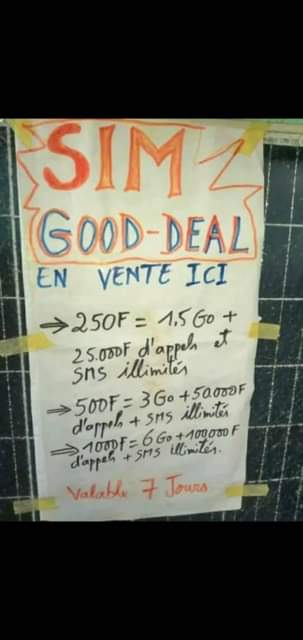 SIM
GOOD-DEAL
EN VENTE ICI
⇒ 250F = 1,5 Go +
25.000F d'appels et
SMS illimités
⇒ 500F = 3 Go + 50.000F
d'appels + SMS illimités
⇒ 1000F = 6 Go + 100000F
d'appels + SMS illimités.
Valable 7 Jours